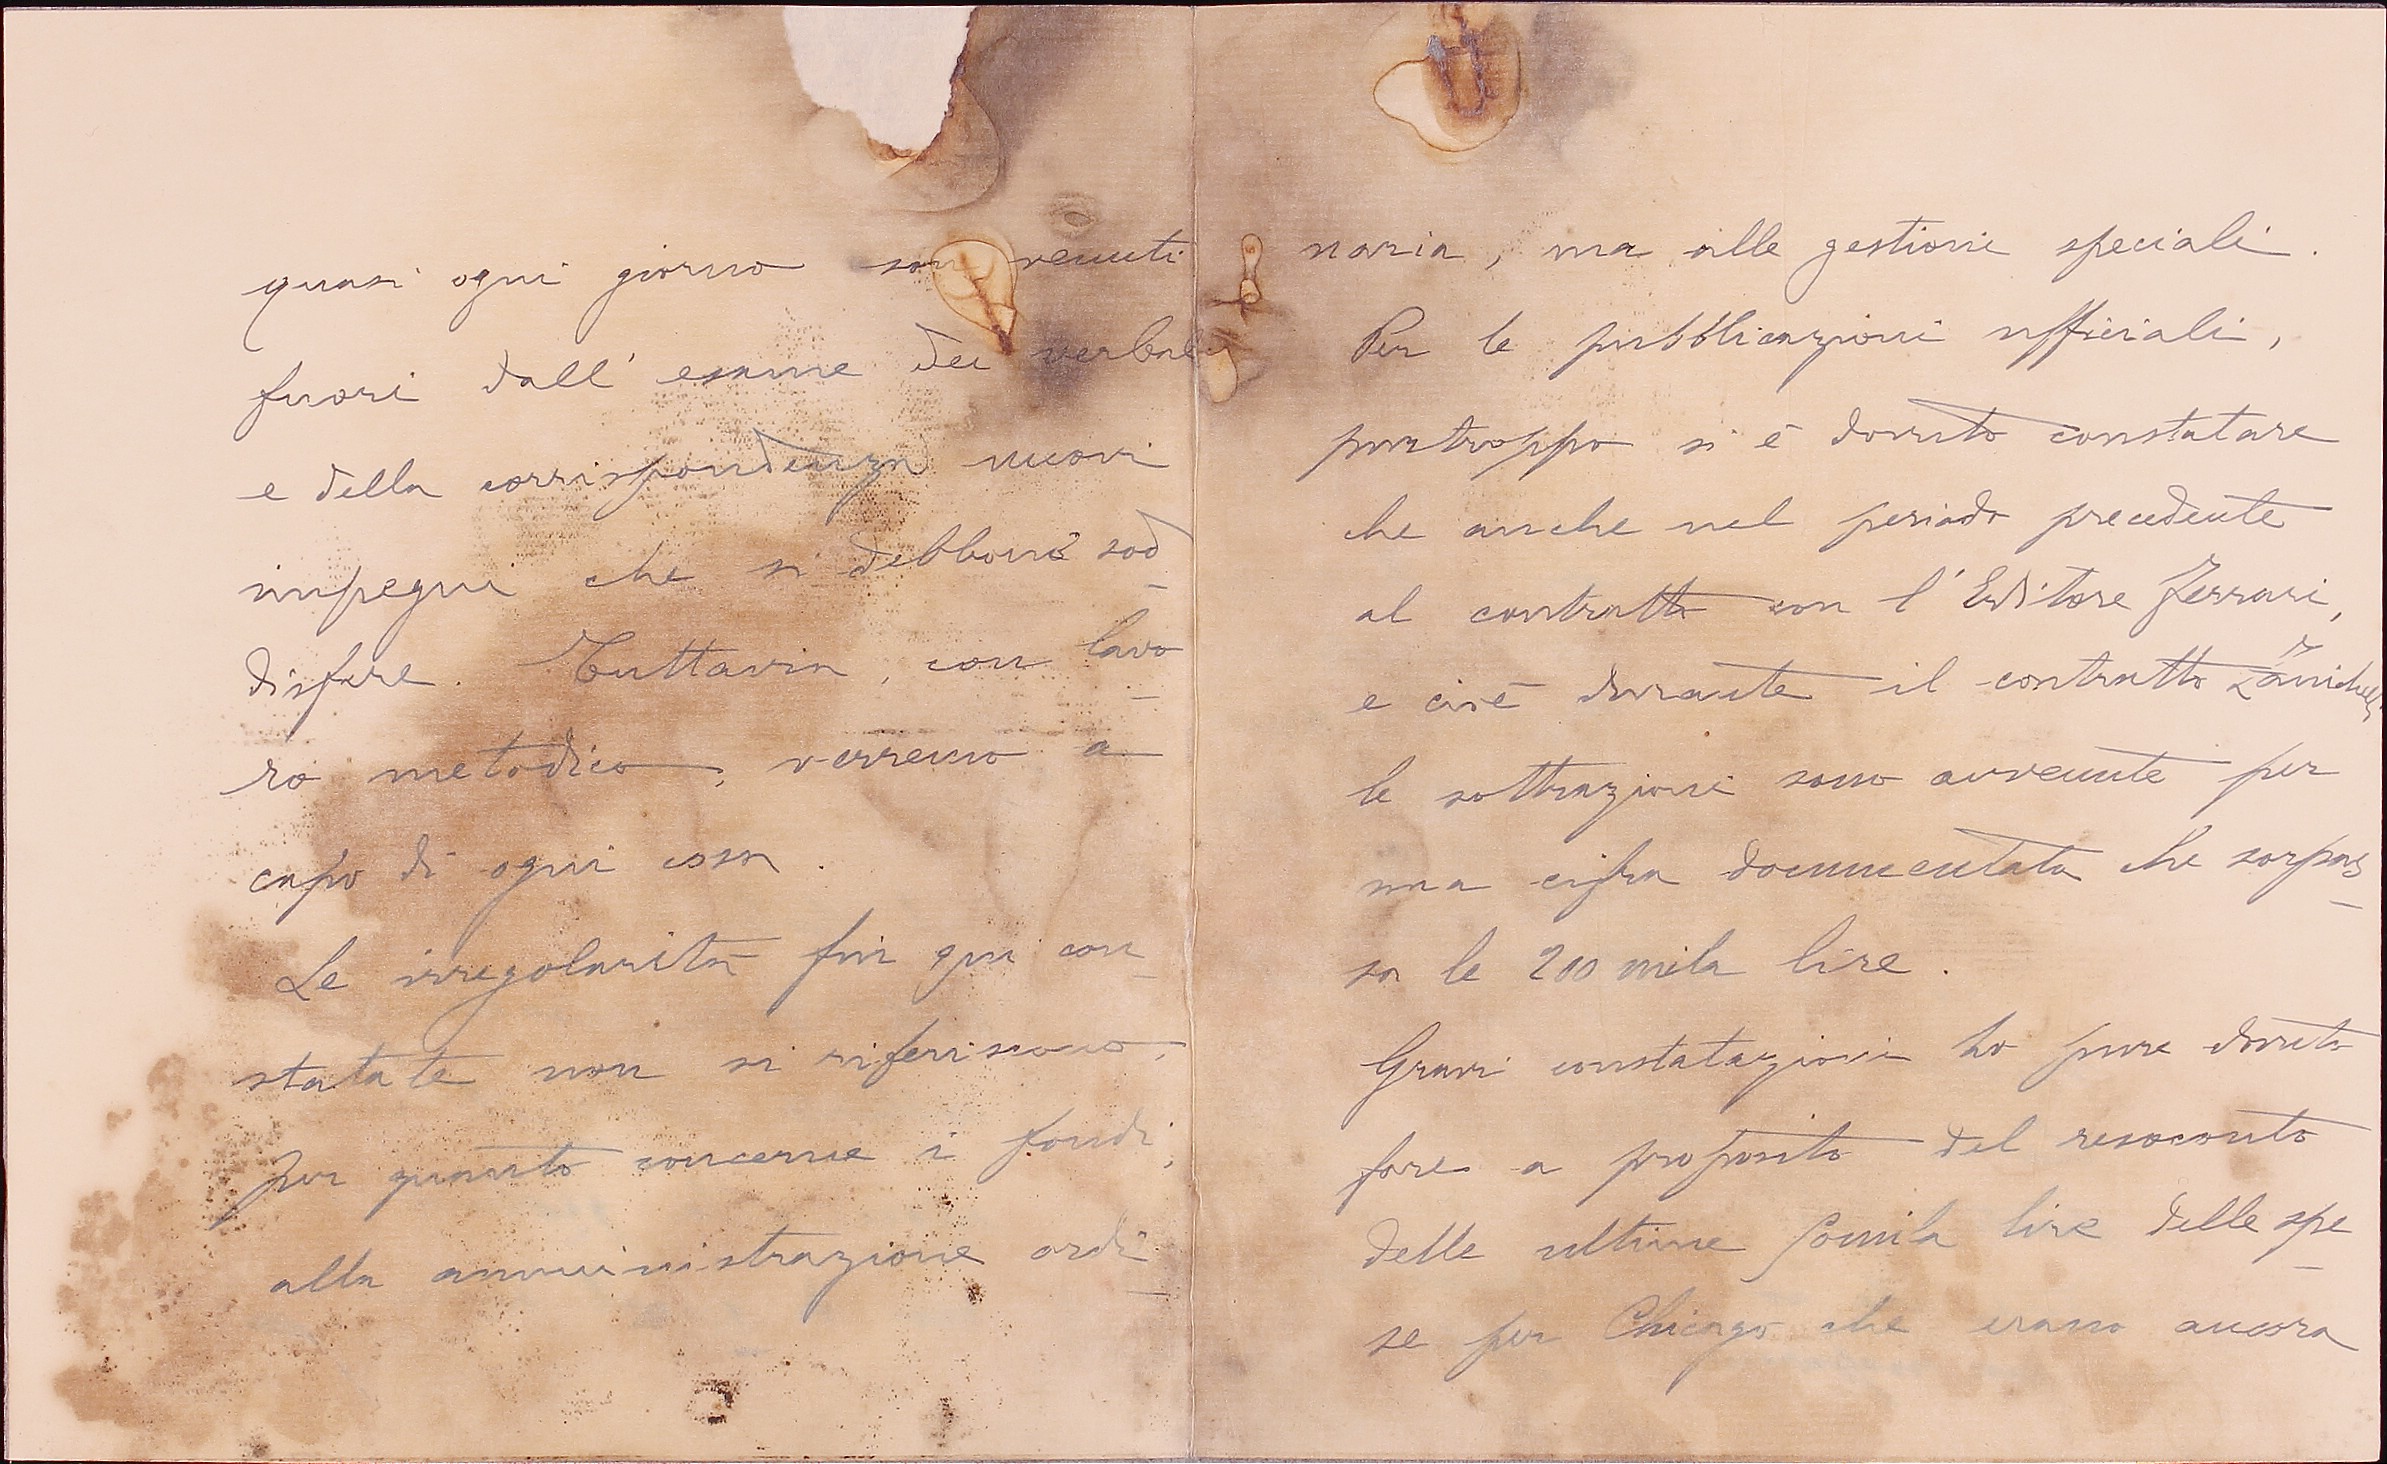 quasi ogni giorno son venuti
fuori dall' esame dei verbali
e della corrispondenza nuovi
impegni che si debbono sod
disfare. Tuttavia, con lavo
ro metodico, verremo a
capo di ogni cosa.
Le irregolarità fin qui con
statate non si riferiscono,
per quanto concerne i fondi,
alla amministrazione ordi
naria, ma alle gestioni speciali.
Per le pubblicazioni ufficiali,
purtroppo si è dovuto constatare
che anche nel periodo precedente
al contratto con l'Editore Ferrari,
e cioè durante il contratto Zanichelli,
le sottrazioni sono avvenute per
una cifra documentata che sorpas
sa le 200 mila lire.
Gravi constatazioni ho pure dovuto
fare a proposito del resoconto
delle ultime lire delle spe
se per Chicago che erano ancora